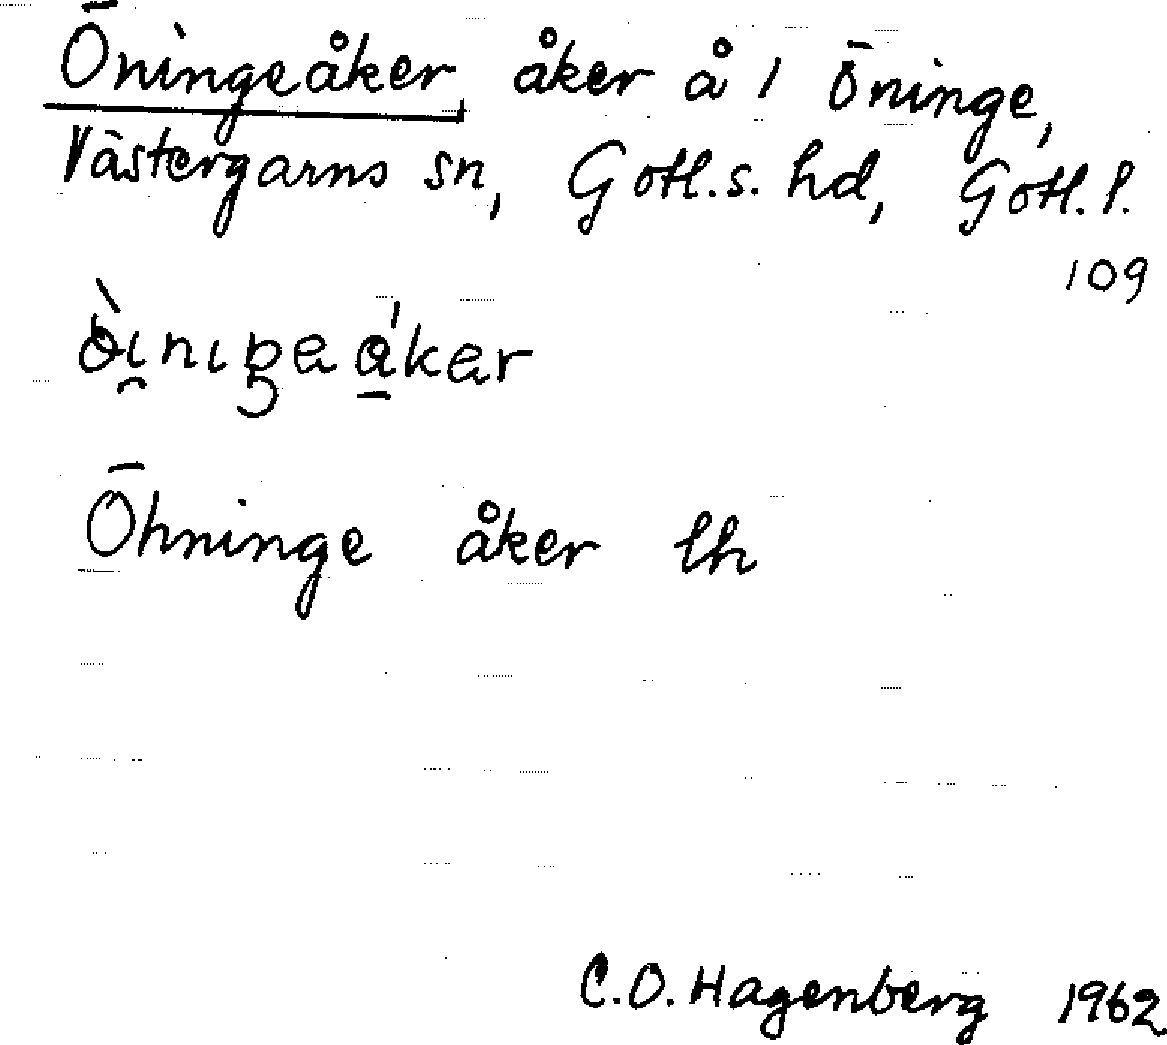 Öningeåker, åker å 1 Öninge,
Västergarns sn, Gotl.s. hd, Gotl. l.
109
Öhninge åker lh
C.O. Hagenberg 1962